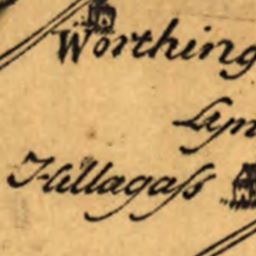 Worthing
Lym
Hillagaſs